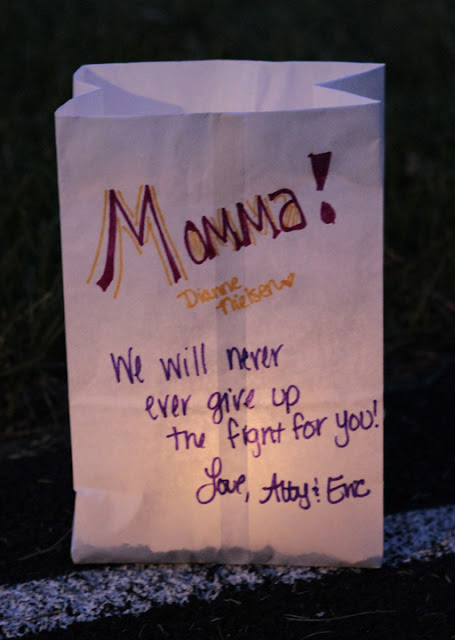 Momma!
Dianne
Nielsen
We will never
ever give up
the fight for you!
Love, Abby & Eric